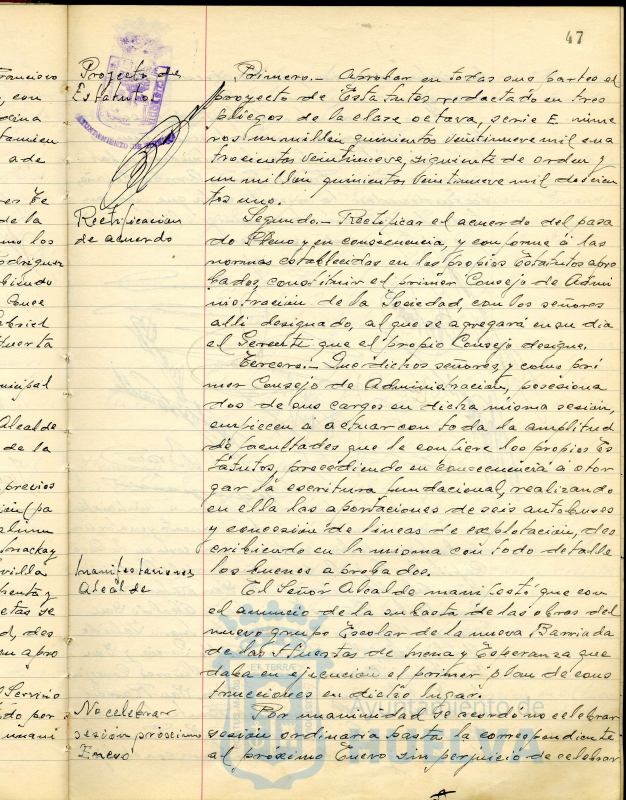 47
Proyecto de
Estatutos
AYUNTAMIENTO DE HUELVA
Primero.- Aprobar en todas sus partes el
proyecto de Estatutos redactado en tres
pliegos de la clase octava, serie E. núme
ros un millón quinientos veintinueve mil cua
trocientos veintinueve, siguiente de orden y
un millón quinientos veintinueve mil doscien
tos uno.
Rectificación
de acuerdo
Segundo.- Rectificar el acuerdo del pasa
do Pleno y en consecuencia, y conforme á las
normas establecidas en los propios Estatutos apro
bados, constituir el primer Consejo de Admi
nistración de la Sociedad, con los señores
alli designado, al que se agregará en su dia
el Gerente que el propio Consejo designe.
Tercero.- Que dichos señores, y como pri
mer Consejo de Administración, posesiona
dos de sus cargos en dicha misma sesión,
empiecen á actuar con toda la amplitud
de facultades que le confiere los propios Es
tatutos, procediendo en consecuencia á otor
gar la escritura fundacional, realizando
en ella las aportaciones de seis autobuses
y concesión de lineas de explotación, des
cribiendo en la misma con todo detalle
los buenos aprobados.
Manifestaciones
Alcalde
El Señor Alcalde manifestó que con
el anuncio de la subasta de las obras del
nuevo grupo Escolar de la nueva Barriada
de las Huertas de Mena y Esperanza que
daba en ejecución el primer plan de cons
trucciones en dicho lugar.
No celebrar
sesión próximo
Enero
Por unanimidad se acordó no celebrar
sesión ordinaria hasta la correspondiente
al próximo Enero sin perjuicio de celebrar
Ayuntamiento de
HUELVA
Francisco
con
tamien
a de
de la
mo los
odriguez
biendo
Gabriel
Huerta
nicipal
Alcalde
de la
previos
Mackay
villa
etas se
d, des
on apro
Servicio
do por
unani